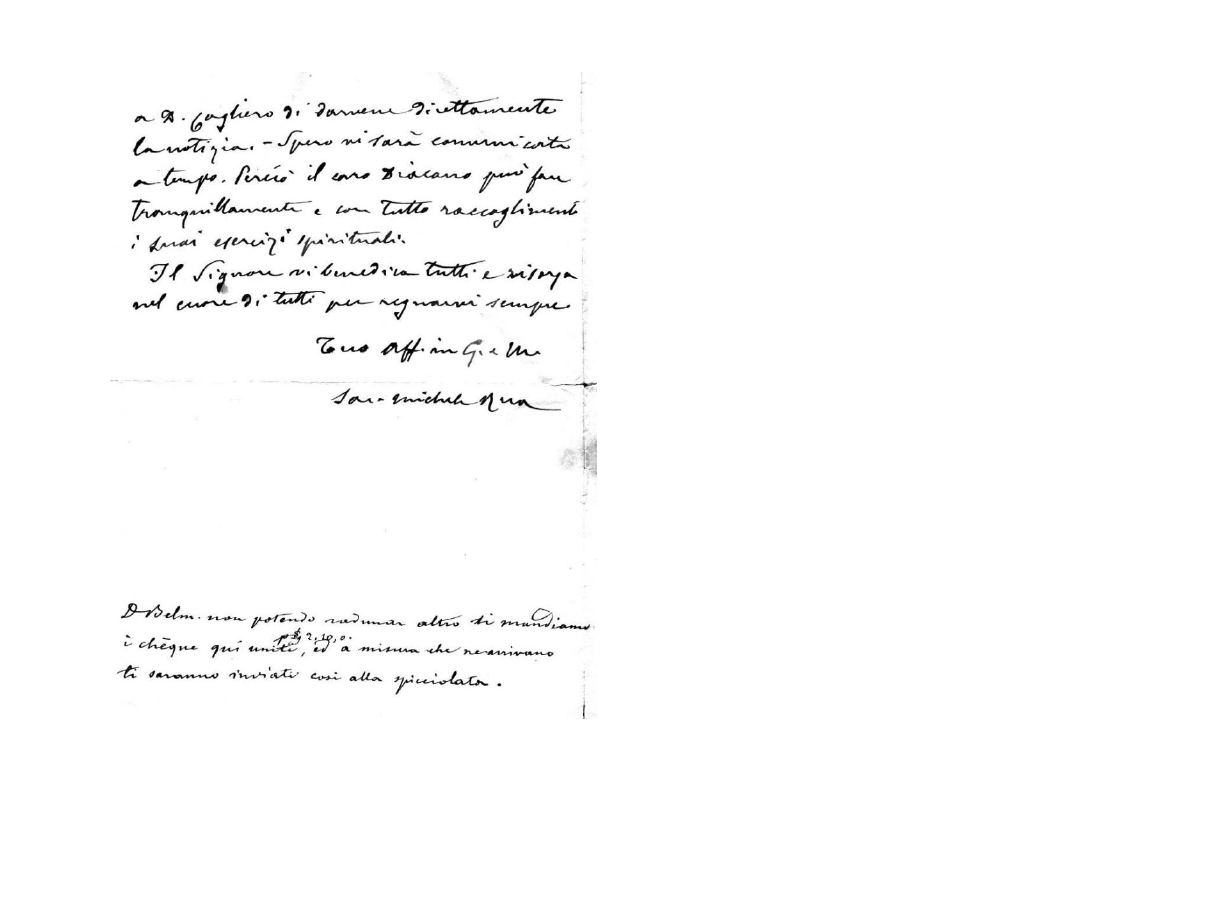 a D. Cagliero di darvene direttamente
la notizia. – Spero vi sarà comunicata
a tempo. Perciò il caro Diacono può fare
tranquillamente e con tutto raccoglimento
i suoi esercizi spirituali.
Il Signore vi benedica tutti e risorga
nel cuore di tutti per regnarvi sempre
Tuo Aff.mo in G. e M.
Sac. Michele Rua
D Belm. non potendo radunar altro ti mandiamo
i chèque qui uniti, ed a misura che ne arrivano
ti saranno inviati così alla spicciolata.